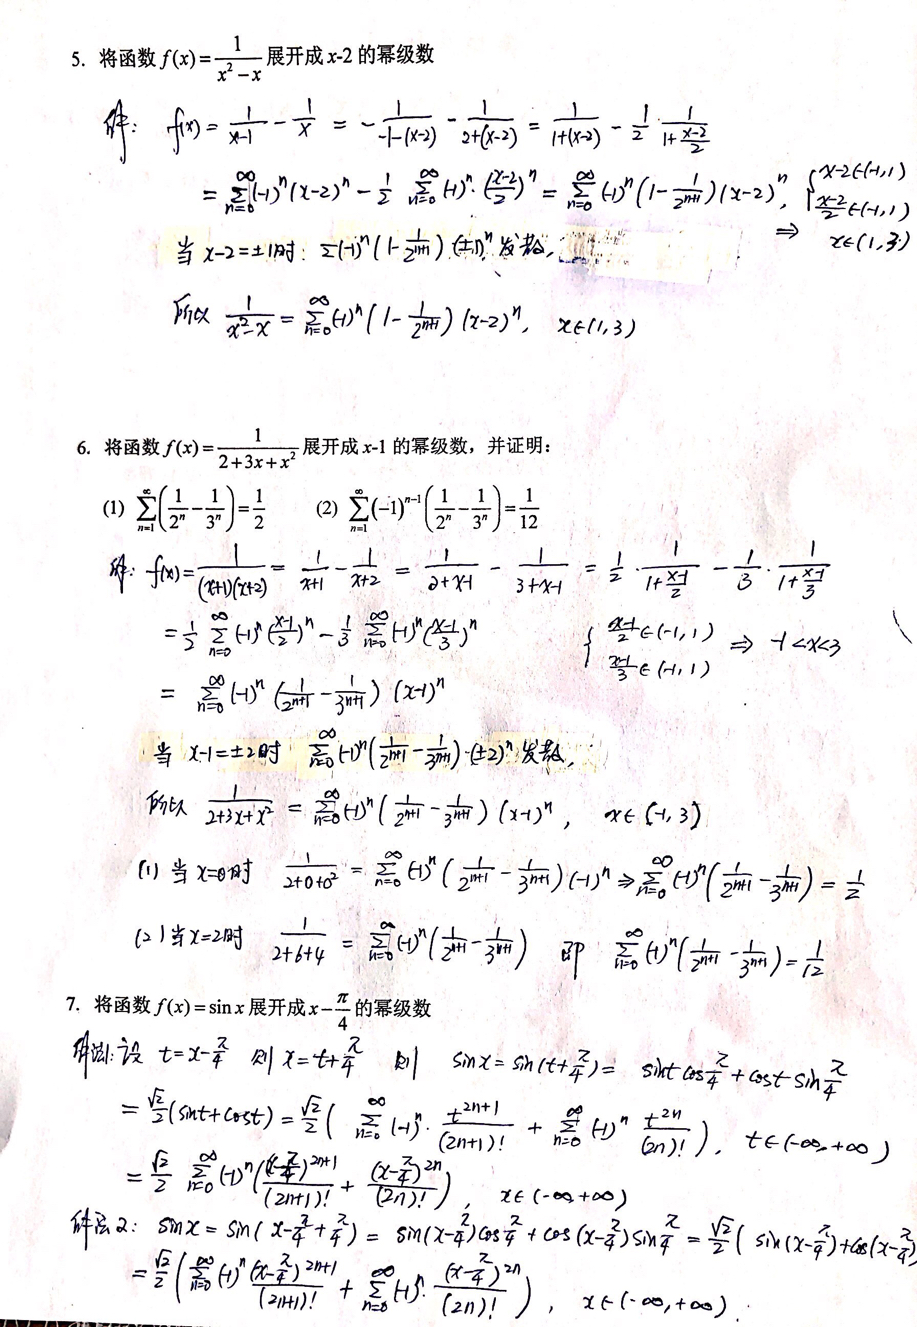 5. 将函数 f(x)=1/(x²−x) 展开成 x-2 的幂级数
解: f(x) = 1/(x-1) − 1/x = −1/(−1−(x-2)) − 1/(2+(x-2)) = 1/(1+(x-2)) − 1/2 · 1/(1+(x-2)/2)
= ∑_{n=0}^∞ (-1)^n (x-2)^n − 1/2 ∑_{n=0}^∞ (-1)^n · ((x-2)/2)^n = ∑_{n=0}^∞ (-1)^n (1 − 1/2^{n+1}) (x-2)^n, { x-2∈(-1,1) (x-2)/2∈(-1,1)
⇒ x∈(1,3)
当 x-2=±1时: ∑(-1)^n (1 − 1/2^{n+1}) (±1)^n 发散,
所以 1/(x²−x) = ∑_{n=0}^∞ (-1)^n (1 − 1/2^{n+1}) (x-2)^n, x∈(1,3)
6. 将函数 f(x)=1/(2+3x+x²) 展开成 x-1 的幂级数，并证明：
(1) ∑_{n=1}^∞ (1/2^n − 1/3^n) = 1/2 (2) ∑_{n=1}^∞ (−1)^{n−1} (1/2^n − 1/3^n) = 1/12
解: f(x) = 1/((x+1)(x+2)) = 1/(x+1) − 1/(x+2) = 1/(2+x-1) − 1/(3+x-1) = 1/2 · 1/(1+(x-1)/2) − 1/3 · 1/(1+(x-1)/3)
= 1/2 ∑_{n=0}^∞ (-1)^n ((x-1)/2)^n − 1/3 ∑_{n=0}^∞ (-1)^n ((x-1)/3)^n { (x-1)/2∈(-1,1) (x-1)/3∈(-1,1) ⇒ -1<x<3
= ∑_{n=0}^∞ (-1)^n (1/2^{n+1} − 1/3^{n+1}) (x-1)^n
当 x-1=±2时 ∑_{n=0}^∞ (-1)^n (1/2^{n+1} − 1/3^{n+1}) · (±2)^n 发散,
所以 1/(2+3x+x²) = ∑_{n=0}^∞ (-1)^n (1/2^{n+1} − 1/3^{n+1}) (x-1)^n, x∈(-1,3)
(1) 当 x=0时 1/(2+0+0²) = ∑_{n=0}^∞ (-1)^n (1/2^{n+1} − 1/3^{n+1}) (-1)^n ⇒ ∑_{n=0}^∞ (-1)^n (1/2^{n+1} − 1/3^{n+1}) = 1/2
(2) 当 x=2时 1/(2+6+4) = ∑_{n=0}^∞ (-1)^n (1/2^{n+1} − 1/3^{n+1}) 即 ∑_{n=0}^∞ (-1)^n (1/2^{n+1} − 1/3^{n+1}) = 1/12
7. 将函数 f(x)=sin x 展开成 x−π/4 的幂级数
解法1: 设 t=x-π/4 则 x=t+π/4 则 sinx = sin(t+π/4) = sint cosπ/4 + cost sinπ/4
= √2/2 (sint+cost) = √2/2 ( ∑_{n=0}^∞ (-1)^n · t^{2n+1}/(2n+1)! + ∑_{n=0}^∞ (-1)^n t^{2n}/(2n)! ), t∈(-∞,+∞)
= √2/2 ∑_{n=0}^∞ (-1)^n ( (x-π/4)^{2n+1}/(2n+1)! + (x-π/4)^{2n}/(2n)! ), x∈(-∞,+∞)
解法2: sinx = sin(x-π/4+π/4) = sin(x-π/4)cosπ/4 + cos(x-π/4)sinπ/4 = √2/2 ( sin(x-π/4)+cos(x-π/4)
= √2/2 ( ∑_{n=0}^∞ (-1)^n (x-π/4)^{2n+1}/(2n+1)! + ∑_{n=0}^∞ (-1)^n · (x-π/4)^{2n}/(2n)! ), x∈(-∞,+∞).